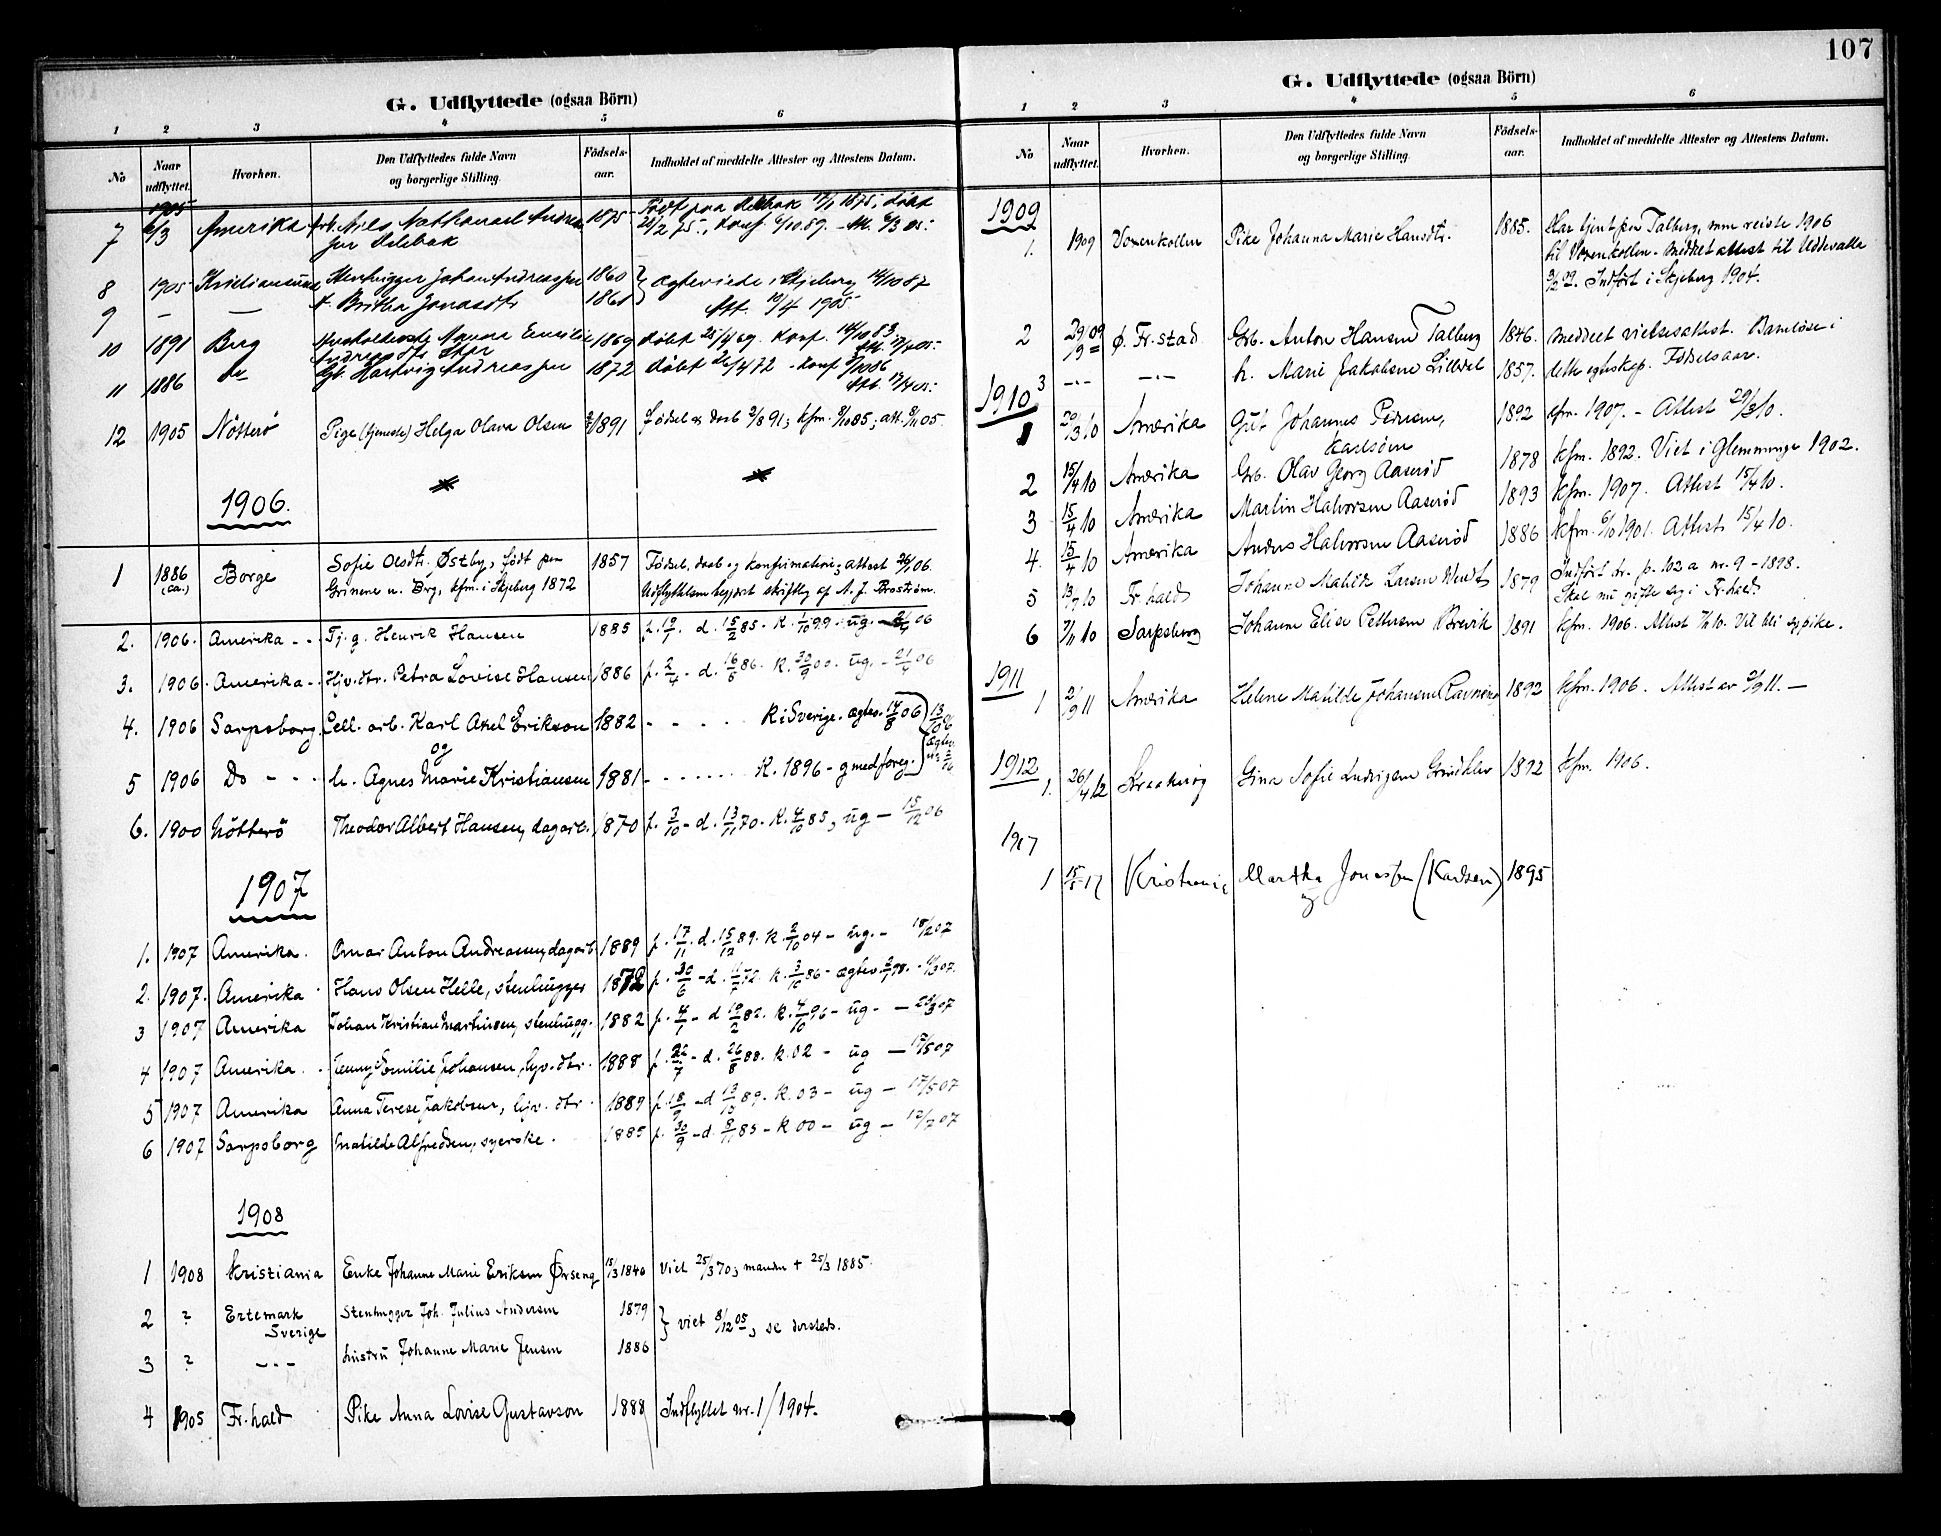 107
G. Udflyttede (ogsaa Börn)
1 2 3 4 5 6
No Naar udflyttet. Hvorhen. Den Udflyttedes fulde Navn og borgerlige Stilling. Födsels-aar. Indholdet af meddelte Attester og Attestens Datum.
1905
7 6/3 Amerika Arb. Niels Nathanael Andrea 1875 Født paa 1875, døbt
21/2 75, konf. 6/10 89. Att. 6/3 05.
8 1905 Kristianssund Stenhugger Johan Andreassen 1860 Ægteviede i Skjeberg 14/10 87
9 — — h. Britha Jonasdtr 1861 Att. 10/4 1905
10 1891 Berg Emilie 1869 døbt 25/4 69. Konf. 14/10 83
11 1886 do Hartvig Andreassen 1872 døbt 26/4 72 - Konf 3/10 86
12 1905 Nötterö Pige (tjeneste) Helga Olava Olsen 1891 födsel og daab
1906.
1 1886 (ca.) Borge Sofie Olsdtr. Østby, født paa 1857 Födsel, daab og konfirmation; attest 26/1 06.
Grinene u. Borg, kfm. i Skjeberg 1872 Udflyttelsen begjært skriftlig af A. J. Broström.
2. 1906. Amerika - - Tj. g. Henrik Hansen 1885 f. 19/1. d. 15/2 85. K. 1/10 99. ug. - 06
3. 1906. Amerika - Hjv. dtr. Petra Lovise Hansen 1886 f. 2/4 - d. 16/5 86. K. 30/9 00. ug. - 21/4 06
4. 1906 Sarpsborg. Cell. arb. Karl Axel Erikson 1882 - - - - K. i Sverige. ægtev. 18/8 06
og
5 1906 Do - - - h. Agnes Marie Kristiansen 1881 - - - - - - K. 1896 - g med foreg.
6. 1900 Nötterö Theodor Albert Hansen, dagarb. 1870 f. 3/10 - d. 13/11 70. K. 4/10 85, ug - 15/12 06
1907
1. 1907 Amerika. Omar Anton Andreassen, dagarb. 1889 f. 17/11. d. 15/12 89. K. 2/10 04 - ug. - 18/2 07
2. 1907. Amerika Hans Olsen Helle, stenhugger 1872 f. 30/6 - d. 72. K. 3/10 86 - ægtev. 98.
3 1907 Amerika Johan Kristian Martinsen, stenhugg. 1882 f. 4/1 - d 19/2 82. K. 4/10 96 - ug. - 20/3 07
4 1907 Amerika. Jenny Emilie Johansen, hjv. dtr. 1888 f. 22/7 - d. 26/8 88. K. 02 - ug - 07
5 1907 Amerika Anna Terese Jakobsen, hjv. dtr. 1889 f. 18/9 - d 13/10 89. K. 03 - ug - 17/5 07
6 1907 Sarpsborg Matilde Alfredsen, syerske. 1885 f. 30/9 - d. 8/11 85 - K 00 - ug - 12/7 07
1908
1 1908 Kristiania Enke Johanne Marie Eriksen Ørseng 15/3 1846 Viet 25/3 70; manden + 25/3 1885.
2 ? Ertemark Stenhugger Joh. Julius Andersen 1879 viet 8/12 05, se dersteds.
Sverige
3 ? - - - hustru Johanne Marie Jensen 1886
4 1905 Fr.hald Pike Anna Lovise Gustavson 1888 Indflyttet nr. 1/1904.
G. Udflyttede (ogsaa Börn)
1 2 3 4 5 6
No Naar udflyttet. Hvorhen. Den Udflyttedes fulde Navn og borgerlige Stilling. Födsels-aar. Indholdet af meddelte Attester og Attestens Datum.
1909
1. 1909 Voxenkollen Pike Johanna Marie Hansdtr. 1885. Har tjent paa Talberg, men reiste 1906
til Voxenkollen. Meddelt attest til Uddevalla
Indført i Skjeberg 1904.
2 Ø. Fr.stad Grb. Anton Hansen Talberg 1846. Meddelt vielsesattest. Barnløse i
3 -..- -..- h. Marie Jakobsen Lilledal 1857. dette egteskap. Fødselsaar.
1910
1 29/3 10 Amerika Gut Johannes Pedersen, 1892 kfm. 1907. - Attest 29/3 10.
Karlsøen
2 15/4 10 Amerika Grb. Olav Georg Aaserød 1878 kfm. 1892. Viet i Glemminge 1902.
3 15/4 10 Amerika Martin Halvorsen Aaserød 1893 kfm. 1907. Attest 15/4 10.
4. 15/4 10 Amerika Anders Halvorsen Aaserød 1886 kfm. 6/10 1901. Attest 15/4 10.
5 13/7 10 Fr.hald Johanne Matilde Larsen 1879 Indført hr. p. 102 a nr. 9 - 1898.
Skal nu gifte seg i Fr.hald
6 7/11 10 Sarpsborg Johanne Elise Pettersen Brevik 1891 kfm. 1906. Attest 7/11 10. Vil bli sypike.
1911
1 2/9 11 Amerika Helene Matilde Johansen 1892 kfm. 1906. Attest av 2/9 11. —
1912
1. 26/4 12 Gina Sofie Ludvigsen 1892 kfm. 1906.
1917
1 15/5 17 Kristiania Martha Jonassen (Karlsen) 1895